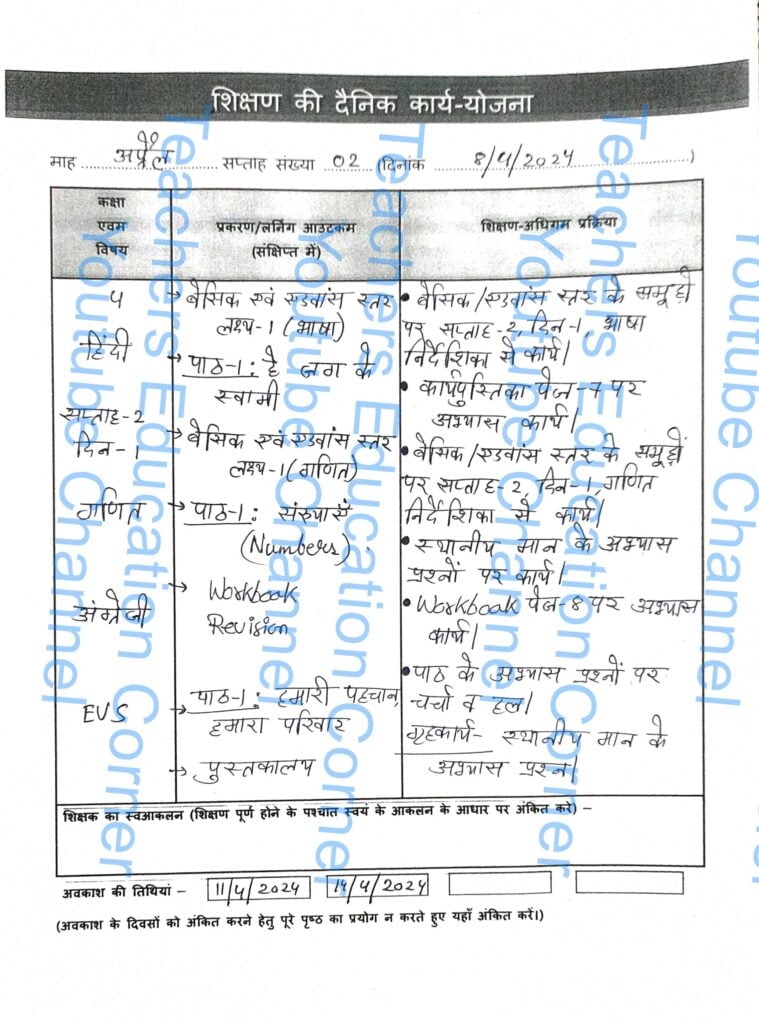 शिक्षण की दैनिक कार्य-योजना
माह अप्रैल सप्ताह संख्या 02 (दिनांक 8/4/2024)
कक्षा
एवम
विषय
प्रकरण/लर्निंग आउटकम
(संक्षिप्त में)
शिक्षण-अधिगम प्रक्रिया
५
हिंदी
सप्ताह-2
दिन-1
गणित
अंग्रेजी
EVS
→ बेसिक एवं एडवांस स्तर
लक्ष्य-1 (भाषा)
→ पाठ-1: हे जग के
स्वामी
→ बेसिक एवं एडवांस स्तर
लक्ष्य-1 (गणित)
→ पाठ-1: संख्याएँ
(Numbers)
→ Workbook
Revision
→ पाठ-1: हमारी पहचान,
हमारा परिवार
→ पुस्तकालय
• बेसिक/एडवांस स्तर के समूहों
पर सप्ताह-2, दिन-1, भाषा
निर्देशिका से कार्य।
• कार्यपुस्तिका पेज-7 पर
अभ्यास कार्य।
• बेसिक/एडवांस स्तर के समूहों
पर सप्ताह-2, दिन-1, गणित
निर्देशिका से कार्य।
• स्थानीय मान के अभ्यास
प्रश्नों पर कार्य।
• Workbook पेज-8 पर अभ्यास
कार्य।
• पाठ के अभ्यास प्रश्नों पर
चर्चा व हल।
गृहकार्य- स्थानीय मान के
अभ्यास प्रश्न।
शिक्षक का स्वआकलन (शिक्षण पूर्ण होने के पश्चात स्वयं के आकलन के आधार पर अंकित करे) –
अवकाश की तिथियां – 11/4/2024 14/4/2024
(अवकाश के दिवसों को अंकित करने हेतु पूरे पृष्ठ का प्रयोग न करते हुए यहाँ अंकित करें।)
Teachers Education Corner
Youtube Channel
Teachers Education Corner
Youtube Channel
Teachers Education Corner
Youtube Channel